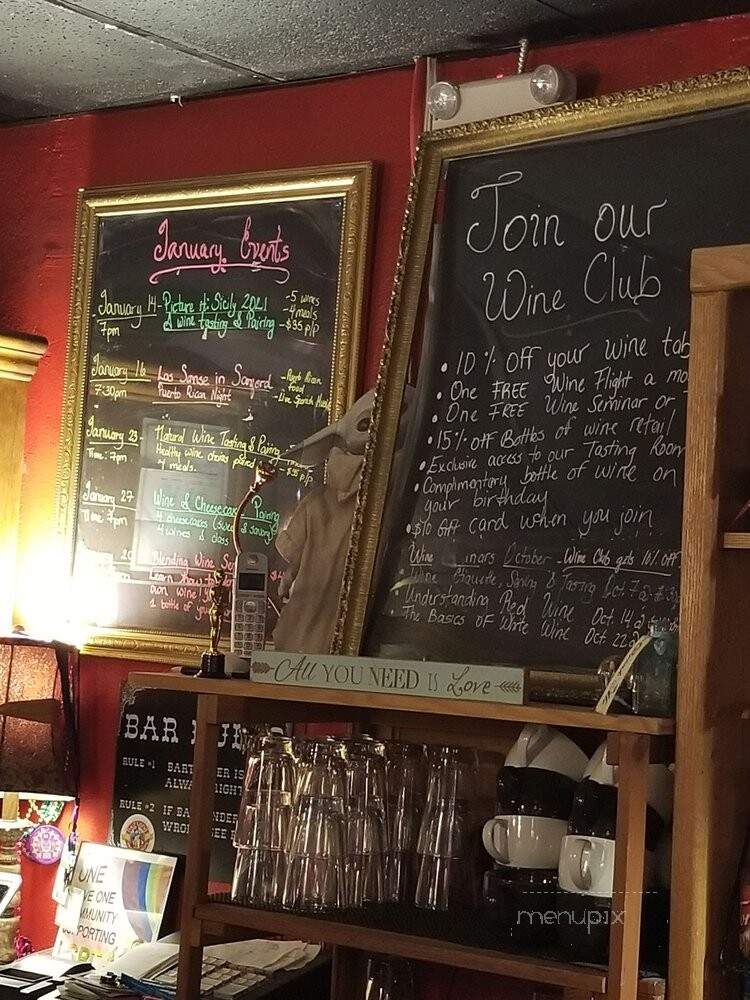 January Events
January 14 - Picture it: Sicily 2021 - 5 wines
7pm A wine tasting & Pairing - 4 meals
- $35 p/p
January 16 Las Sanse in Sangerd - Puerto Rican food
7:30pm Puerto Rican Night - Live Spanish Music
January 23 - Natural Wine Tasting & Pairing
Time: 7pm Healthy wine choices paired
4 meals. - $35 p/p
January 27 Wine & Cheesecake Pairing
Time 7pm 4 cheesecakes (sweet & savory)
4 wines & class
Blending Wine
Learn how to
own wine!
1 bottle of
Join our
Wine Club
• 10% OFF your wine tab
• One FREE Wine Flight a mo
• One FREE Wine Seminar or
• 15% off Bottles of wine retail
• Exclusive access to our Tasting Room
• Complimentary bottle of wine on
your birthday
• $10 Gift card when you join
Wine inars October - Wine Club gets 10% off
Wine Etiquette, Serving & Tasting Oct 7
Understanding Red Wine Oct 14
The Basics of White Wine Oct 22
All YOU NEED IS Love
BAR RULES
RULE #1 BARTENDER IS
ALWAYS RIGHT
RULE #2 IF BARTENDER
WRONG SEE R
UNE
VE ONE
MMUNITY
PPORTING
menupix